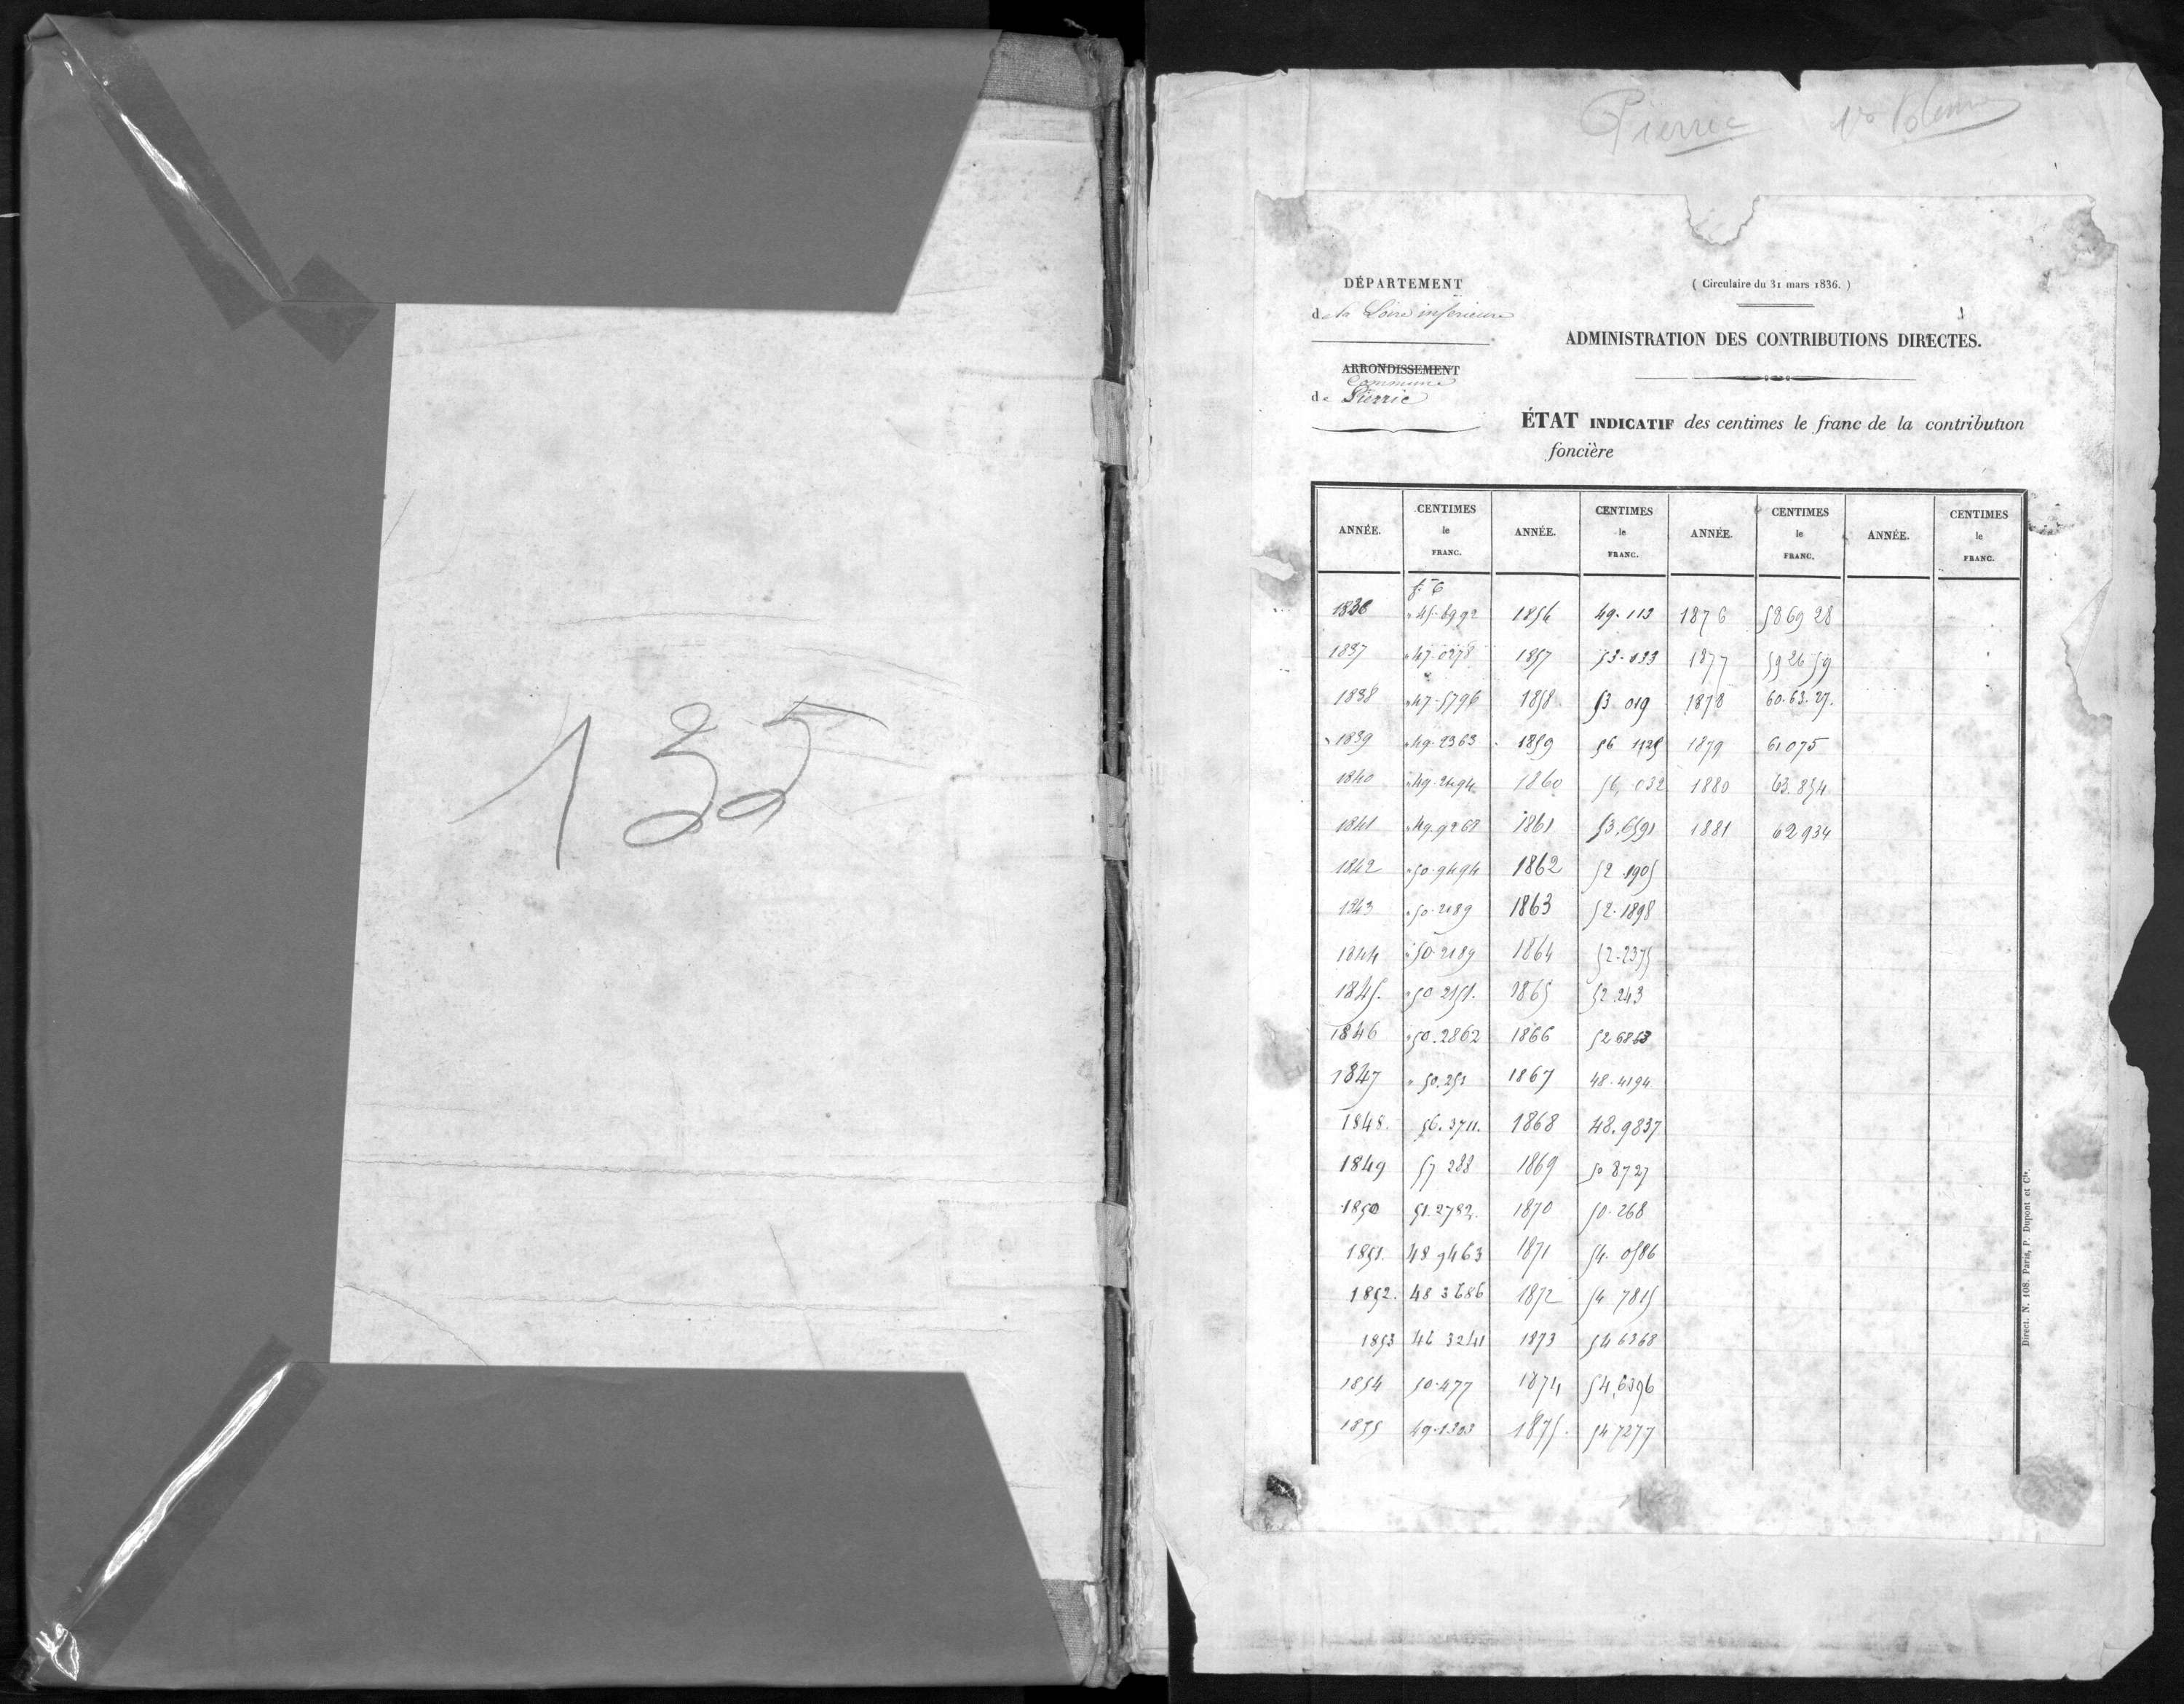 135
Pierric 1er Volume
DÉPARTEMENT
de la Loire inférieure
ARRONDISSEMENT
Commune
de Pierric
( Circulaire du 31 mars 1836. )
ADMINISTRATION DES CONTRIBUTIONS DIRECTES.
ÉTAT INDICATIF des centimes le franc de la contribution
foncière
ANNÉE. CENTIMES le FRANC. ANNÉE. CENTIMES le FRANC. ANNÉE. CENTIMES le FRANC. ANNÉE. CENTIMES le FRANC.
f. c
1836 " 45.6992 1856 49.113 1876 58 69 28
1837 " 47.0278 1857 53.033 1877 59 26 59
1838 " 47.5796 1858 53 019 1878 60.63.27.
1839 " 49.2363 1859 56 1125 1879 61 075
1840 " 49.2494 1860 56,032 1880 63.854
1841 " 49.9268 1861 53,6591 1881 62 934
1842 " 50.9494 1862 52.1905
1843 " 50.2189 1863 52.1898
1844 " 50.2189 1864 52.2375
1845. " 50.2151. 1865 52.243
1846 " 50.2862 1866 52 6863
1847 " 50.251 1867 48.4194
1848. 56.3711. 1868 48.9837
1849 57 288 1869 50 8727
1850 51.2782. 1870 50.268
1851. 48 9463 1871 54.0586
1852. 48 3686 1872 54 7815
1853 46 3241 1873 54 6368
1854 50.477 1874 54,6396
1855 49.1303 1875. 54 7277
Direct. N. 108. Paris, P. Dupont et Cie.